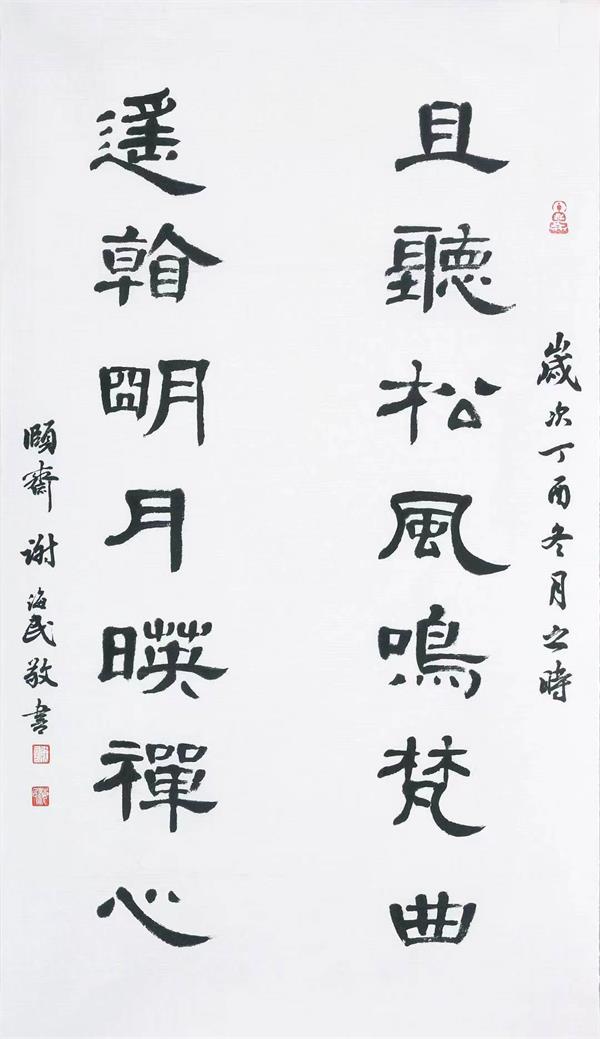 歲次丁酉冬月之時
且聽松風鳴梵曲
遙看朙月暎禪心
頤齋 謝海民敬書